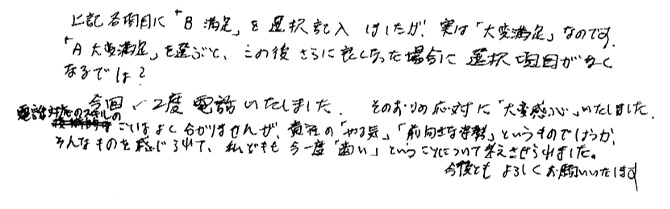 上記各項目に「B 満足」を選択記入 はしたが、実は「大変満足」なのです。
「A 大変満足」を選ぶと、この後 さらに良くなった場合に 選択項目がなく
なるでは?
今回、2度電話いたしました。 そのおりの応対に「大変感心」いたしました。
電話対応のスキルの ことはよく分かりませんが、貴社の「やる気」「前向きな姿勢」というものでしょうか、
そんなものを感じられて、私どもも今一度「商い」ということについて考えさせられました。
今後とも よろしくお願いいたします